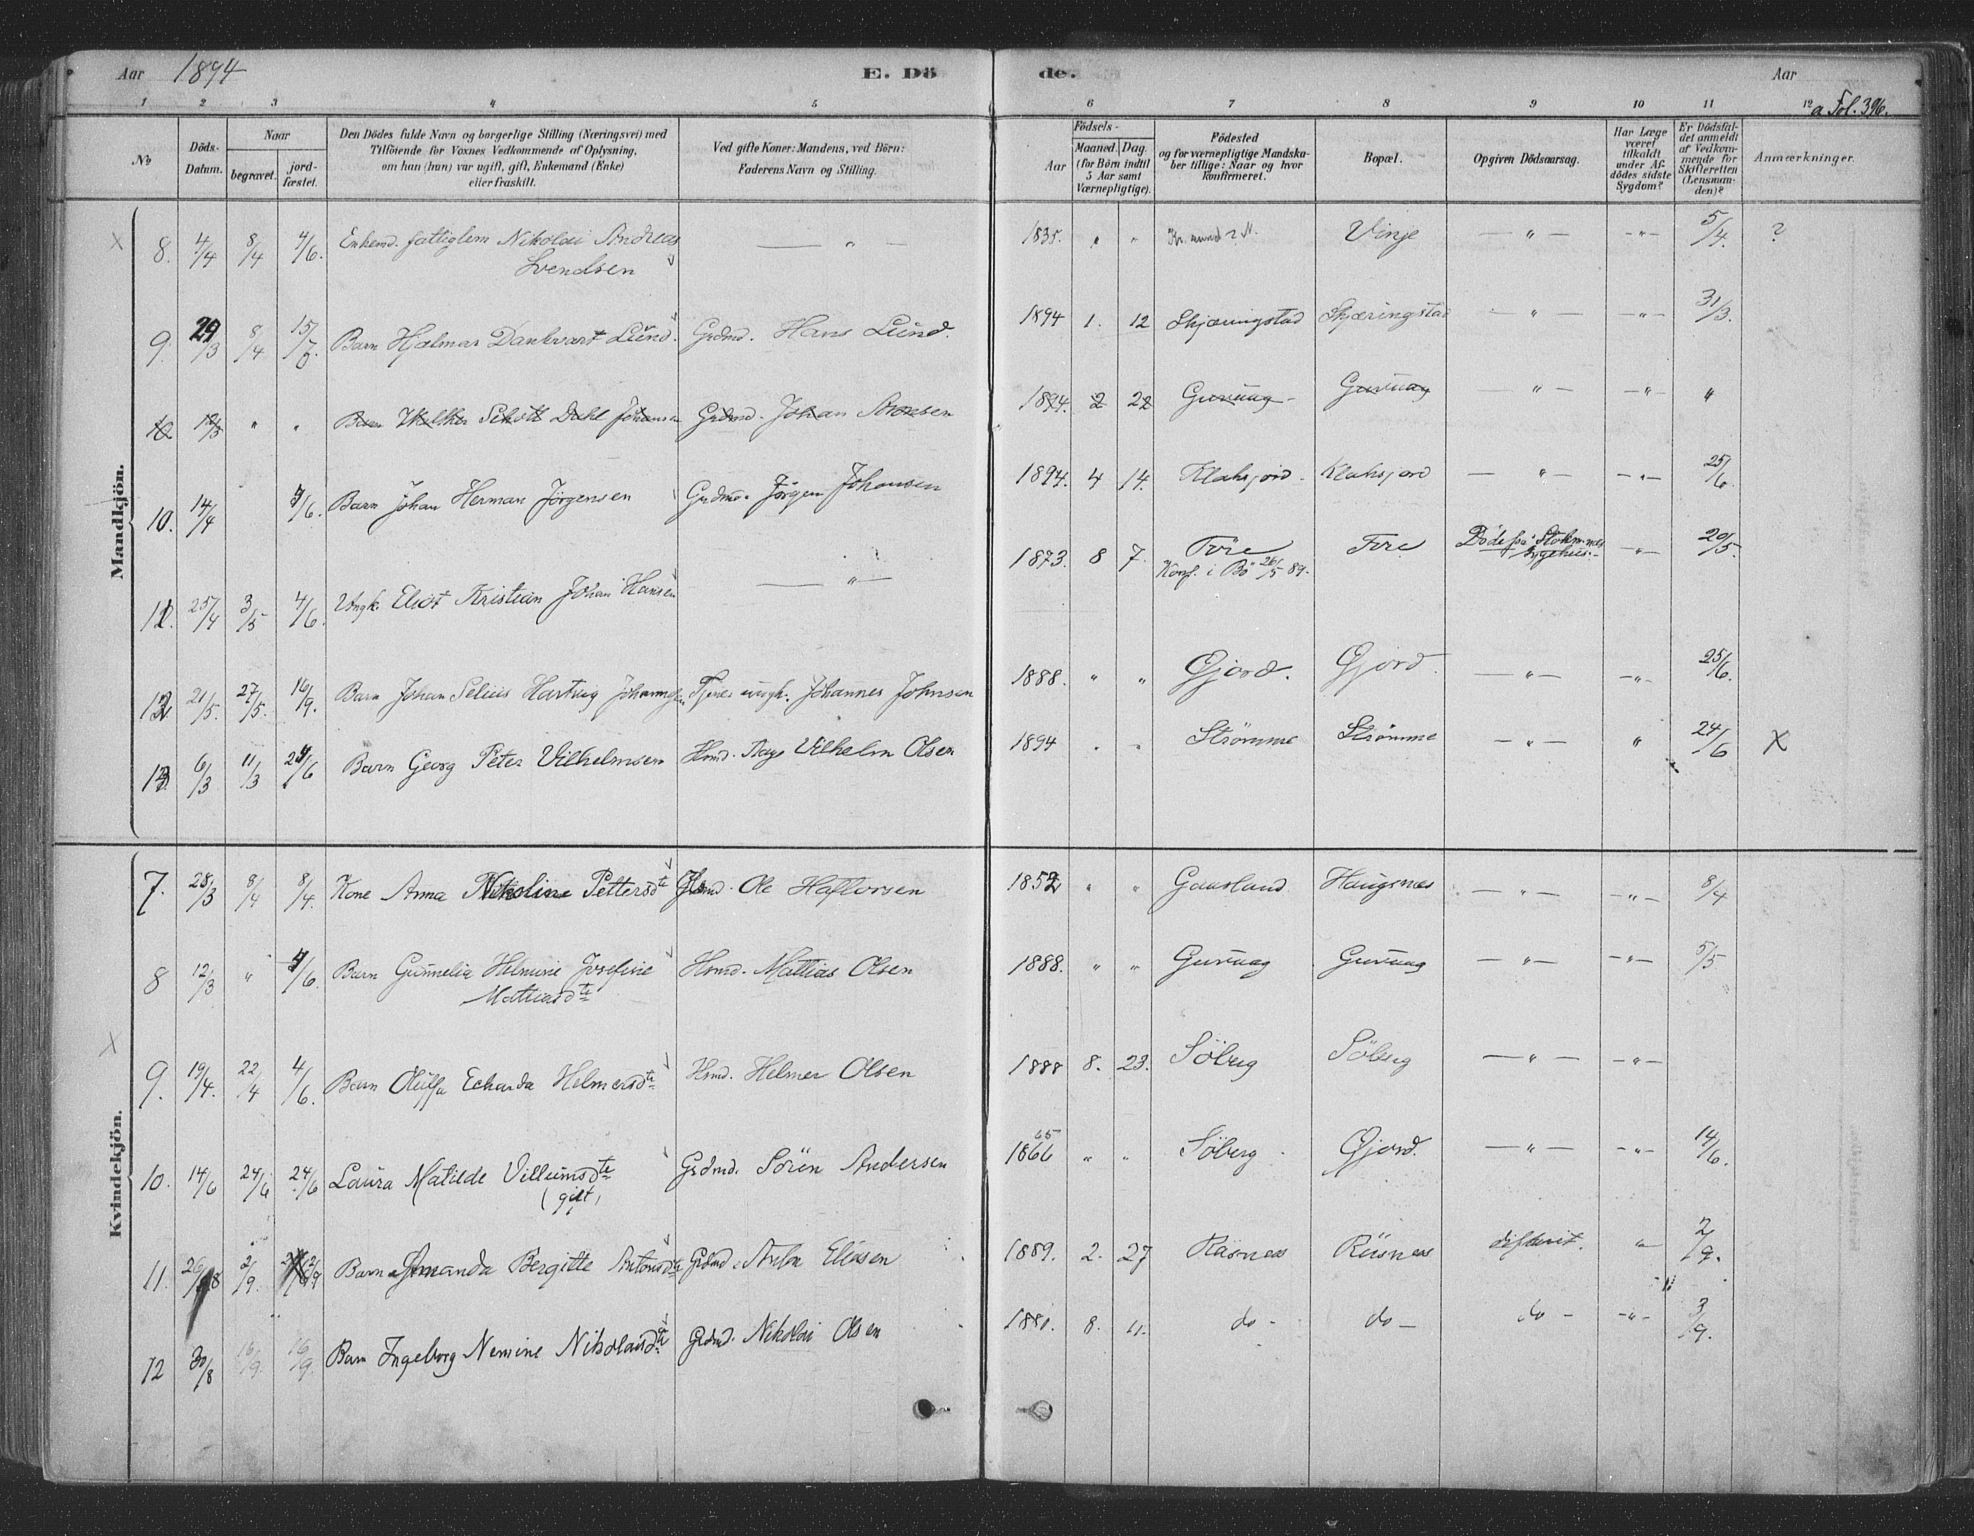 Aar 1894 E. Dö de. Aar
1 2 3 4 5 6 7 8 9 10 11 12 a Fol. 396.
No
Döds-Datum.
Naar
begravet.
jord-fæstet.
Den Dödes fulde Navn og borgerlige Stilling (Næringsvei) med
Tilföiende for Voxnes Vedkommende af Oplysning,
om han (hun) var ugift, gift, Enkemand (Enke)
eller fraskilt.
Ved gifte Koner: Mandens, ved Börn:
Faderens Navn og Stilling.
Födsels-
Aar
Maaned. Dag.
(for Börn indtil
5 Aar samt
Værnepligtige).
Födested
og for værnepligtige Mandska-
ber tillige: Naar og hvor
konfirmeret.
Bopæl.
Opgiven Dödsaarsag.
Har Læge
været
tilkaldt
under Af-
dödes sidste
Sygdom?
Er Dödsfal-
det anmeldt
af Vedkom-
mende for
Skifteretten
(Lensman-
den)?
Anmærkninger.
Mandkjön.
8. 4/4 8/4 4/6. Enkemd. fattiglem Nikolai Andreas — " — 1835. " " Vinje — " — - " - 5/4. ?
Svendsen
9. 29/3 8/4 15/7. Barn Hjalmar Dankvart Lund. Grdmd. Hans Lund. 1894 1. 12 Skjæringstad Skjæringstad — " — - " - 31/3.
" " Barn Schött Dahl Johansen Grdmd. Johan 1894. 2 22 Guvaag - Guvaag — " — - " - "
10. 14/4 4/6. Barn Johan Herman Jörgensen Grdmd. Jörgen Johansen 1894. 4 14. Klaksjord - Klaksjord — " — - " - 25/6.
11. 25/4 3/5 4/6. Ungk. Eliot Kristian Johan Hansen — " — 1873. 8 7. Tore Tore Döde paa Stokmarknes - " - 20/5.
Konf. i Bö 26/5 89. Sygehus.
12. 21/5. 27/5. 16/9. Barn Johan Selius Hartvig Johannesen Tjenes ungk. Johannes Johnsen 1888. " " Gjord. Gjord. — " — - " - 25/6.
13. 6/3 11/3 24/6 Barn Georg Peter Vilhelmsen Hsmd. Aage Vilhelm Olsen 1894 " " Strömme Strömme — " — " 24/6 X
Kvindekjön.
7. 28/3 8/4 8/4. Kone Anna Nikoline Pettersdtr Hsmd. Ole Haflorsen 1852 " " Gaasland Haugsnes — " — - " - 8/4
8 12/3 " 4/6. Barn Gunnelia Helmine Josefine Hsmd. Mattias Olsen 1888. " " Guvaag Guvaag — " — - " - 5/5
Mathiasdtr
9. 19/4. 22/4 4/6. Barn Oluffa Echarda Helmersdtr Hsmd. Helmer Olsen 1888 8. 23. Söberg Söberg — " — - " -
10. 14/6 24/6 24/6 Laura Matilde Villumsdtr Grdmd. Sören Andersen 65 1866 " " Söberg - Gjord. — " — - " - 14/6.
(gift)
11. 26/8 2/9. 2/9 Barn Amanda Bergitte Antonsdtr Grdmd. Anton Eliasen 1889. 2. 27 Risnes Risnes difterit. " 2/9.
12 30/8 16/9 16/9. Barn Ingeborg Nemine Nikolaisdtr Grdmd. Nikolai Olsen 1881. 8. 11. do - do — do - - " - 3/9.